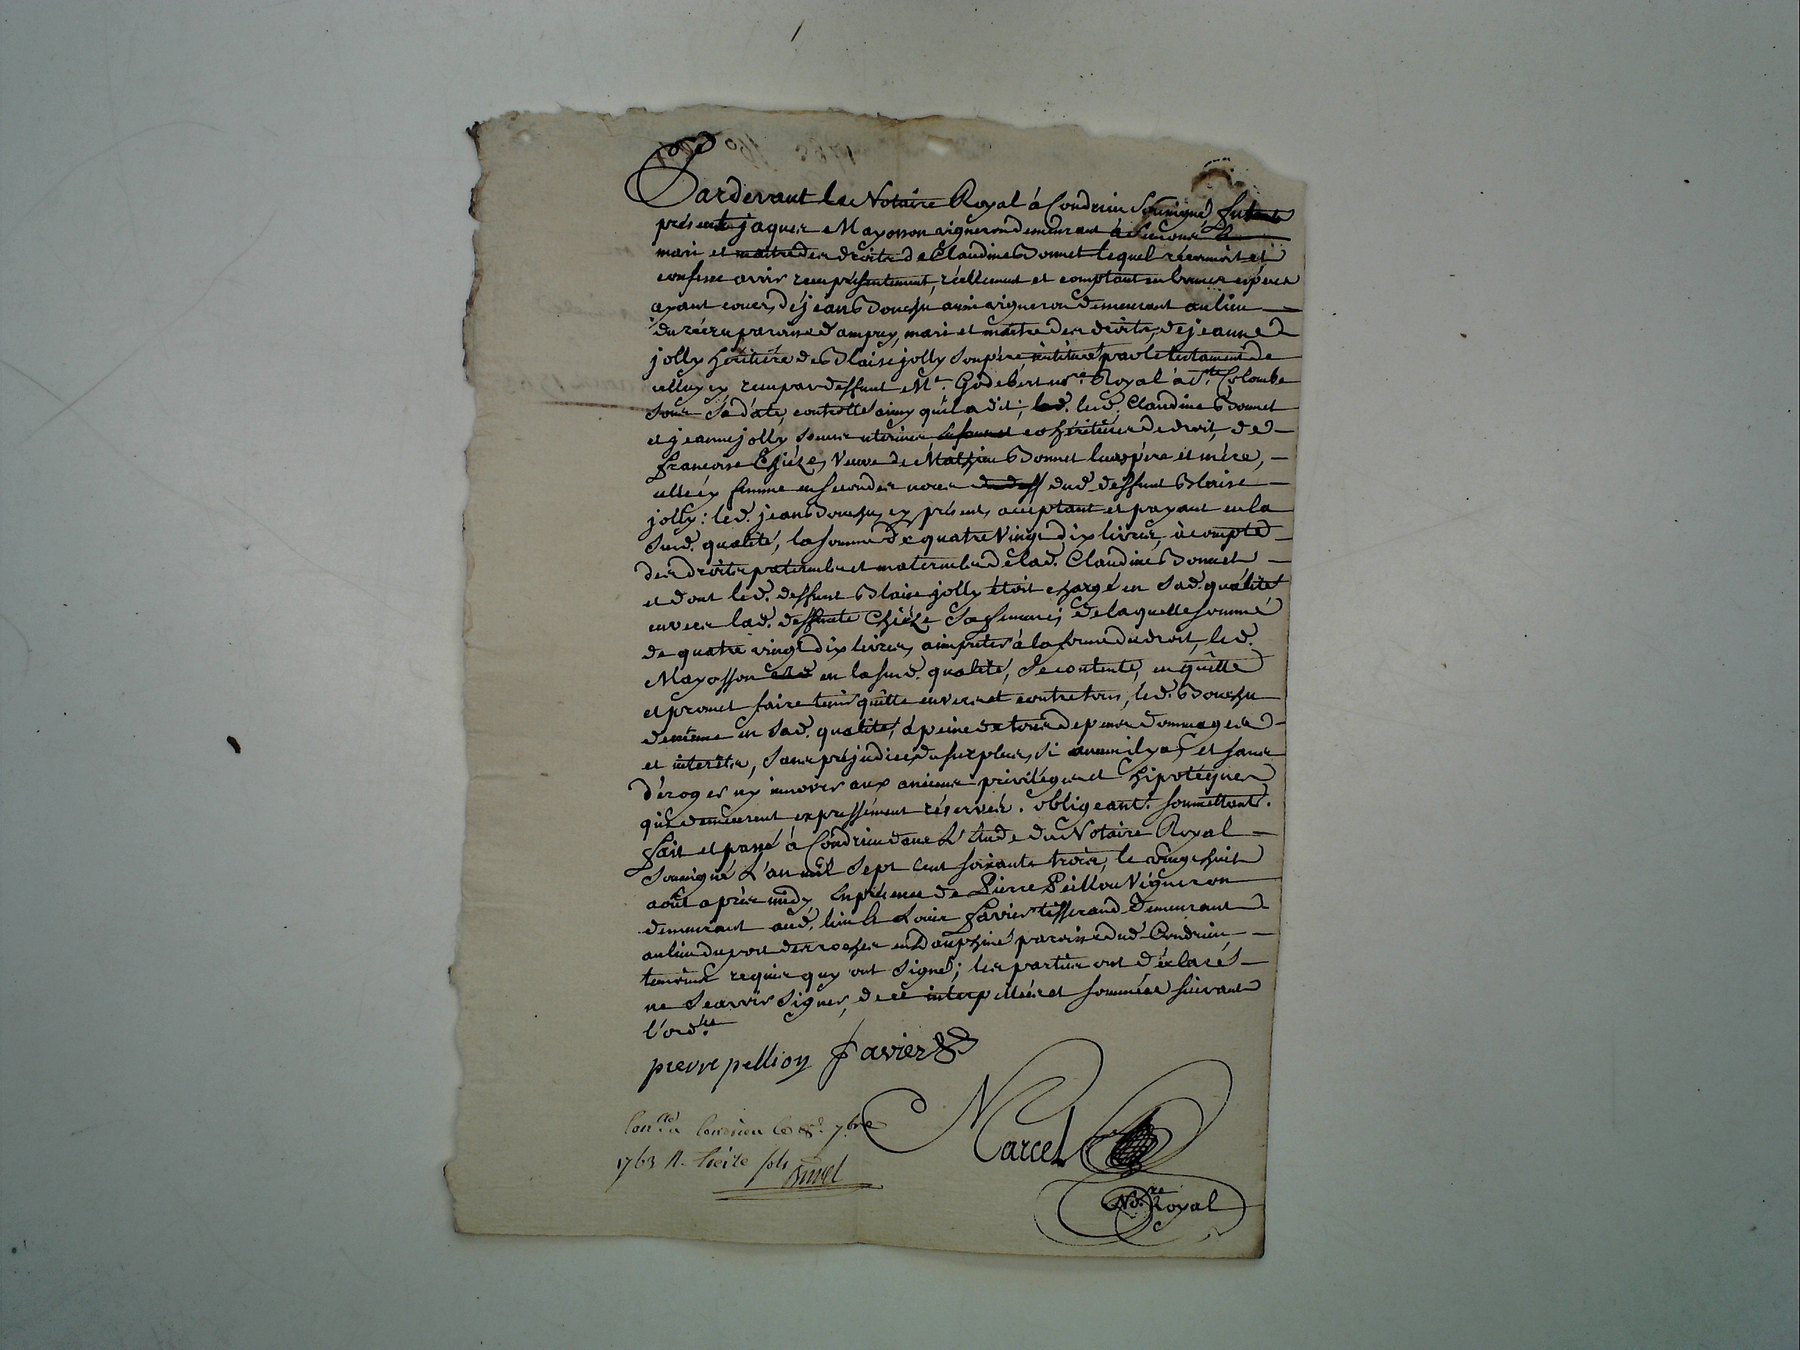 Pardevant le Notaire Royal à Condrieu Soussigné fut
présent jaques Mayosson vigneron demeurant à
mari et maitre des droits de Claudine Bonnet lequel reconnoit et
confesse avoir reçu présentement, réellement et comptant en bonnes espèces
ayant cours, de jean Bouchu aussi vigneron demeurant au lieu
du paroisse d'ampuy, mari et maitre des droits, de jeanne
jolly héritière de Blaise jolly son père institué par le testament de
celluy cy reçu par deffunt Me. Godebert nore. Royal à Ste. Colombe
sous sa date, controllé ainsy qu'il a dit; led. lesd. Claudine Bonnet
et jeanne jolly soeurs uterines cohéritières de droit, de
francoise Chièze, veuve de Mathieu Bonnet leurs père et mère,
celle cy femme en secondes noces dud. deffunt Blaise
jolly: led. jean Bouchu cy présent, acceptant et payant en la
susd. qualité, la somme de quatre vingt dix livres, à compte
des droits paternels et maternels de lad. Claudine Bonnet
et dont led. deffunt Blaise jolly étoit chargé en sad. qualité
envers lad. deffunte Chièze sa femme; de laquelle somme
de quatre vingt dix livres, à imputer à la forme du droit, led.
Mayosson en la susd. qualité, se contente, en quitte
et promet faire tenir quitte envers et contre tous, led. Bouchu
de même en sad. qualité, à peine de tous depens dommages
et interêts, sans préjudice du surplus, si aucun il y a, et sans
déroger ny innover aux anciens privilèges et hipotèques
qui demeurent expressément réservés. obligeant. soumettant.
fait et passé à Condrieu dans L'étude du Notaire Royal
Soussigné L'an mil sept cent soixante trois, le vingt huit
août après midy, en présence de Pierre Peillon Vigneron
demeurant aud. lieu & Louis Favier tisserand demeurant
au lieu du port des roches en Dauphiné paroisse dud. Condrieu,
temoins requis quy ont signé; les parties ont déclaré
ne sçavoir signer, de ce interpellées et sommées suivant
l'ordce.
pierre pellion Favier
Marcel
Nore. Royal
Conlle. à Condrieu le 8. 7bre
1763 R. treize sols